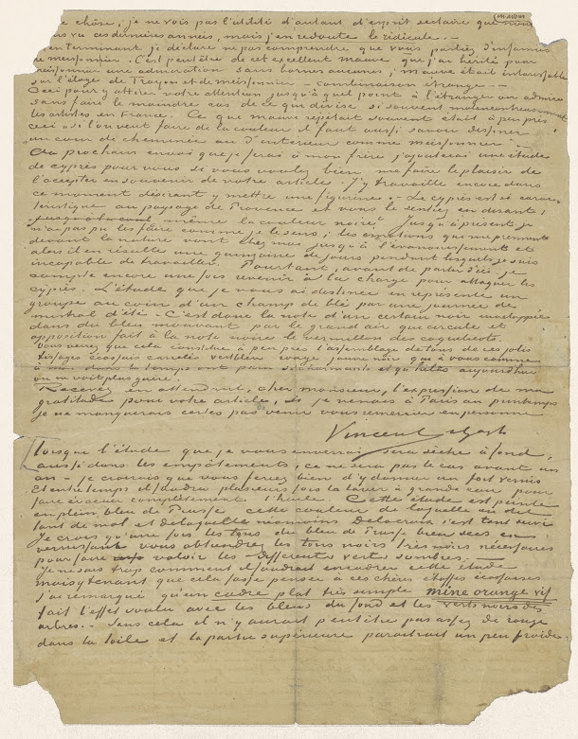 chôse, je ne vois pas l'utilité d'autant d'esprit sectaire que nous
vu ces dernieres années, mais j'en redoute le ridicule. —
en terminant je déclare ne pas comprendre que vous parliez d'infamies
de meissonnier. C'est peutêtre de cet excellent mauve que j'ai hérité pour
meissonnier une admiration sans bornes aucunes; mauve était intarissable
sur l'éloge de Troyon et de meissonnier — combinaison étrange —
Ceci pour y attirer votre attention jusqu'à quel point à l'étranger on admire
sans faire le moindre cas de ce qui divise si souvent malencontreusement
les artistes en France. Ce que mauve répétait souvent était à peu près
ceci "si l'on veut faire de la couleur il faut aussi savoir dessiner
un coin de cheminée ou d'interieur comme meissonnier —
Au prochain envoi que je ferai à mon frère j'ajouterai une étude
de cyprès pour vous si vous voulez bien me faire le plaisir de
l'accepter en souvenir de votre article. J'y travaille encore dans
ce moment désirant y mettre une figurine. — Le cyprès est si carac-
teristique au paysage de Provence et vous le sentiez en disant;
même la couleur noire" Jusqu'à présent je
n'ai pas pu les faire comme je le sens; les émotions qui me prennent
devant la nature vont chez moi jusqu'à l'évanouissement et
alors il en résulte une quinzaine de jours pendant lesquels je suis
incapable de travailler. Pourtant, avant de partir d'ici je
compte encore une fois revenir à la charge pour attaquer les
cyprès. L'étude que je vous ai destinée en représente un
groupe au coin d'un champ de blé par une journée de
mistral d'été — C'est donc la note d'un certain noir enveloppée
dans du bleu mouvant par le grand air qui circule et
opposition fait à la note noire le vermillon des coquelicots.
Vous verrez que cela constitue à peu près l'assemblage de tons de ces jolis
tissages ecossais carrelés vert bleu rouge jaune noir qui à vous comme
à moi dans le temps ont paru si charmants et qu'hélas aujourd'hui
on ne voit plus guère.
Recevez en attendant, cher monsieur, l'expression de ma
gratitude pour votre article, si je venais à Paris au printemps
je ne manquerais certes pas venir vous remercier en personne
Vincent v Gogh
lorsque l'étude que je vous enverrai sera sèche à fond,
aussi dans les empâtements, ce ne sera pas le cas avant un
an — je croirais que vous feriez bien d'y donner un fort vernis
Et entre temps il faudra plusieurs fois la laver à grande eau pour
faire évacuer complètement l'huile. Cette étude est peinte
en plein bleu de Prusse cette couleur de laquelle on dit
tant de mal et de laquelle neamoins Delacroix s'est tant servi
Je crois qu'une fois les tons du bleu de Prusse bien secs en
vernissant vous obtiendrez les tons noirs très noirs nécessaires
pour faire valoir les differents verts sombres. —
Je ne sais trop comment il faudrait encadrer cette étude
mais y tenant que cela fasse penser à ces chères étoffes ecossaises
j'ai remarqué qu'un cadre plat très simple mine orange vif
fait l'effet voulu avec les bleus du fond et les verts noirs des
arbres. — Sans cela il n'y aurait peutêtre pas assez de rouge
dans la toile et la partie supérieure paraîtrait un peu froide.